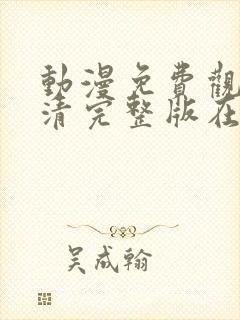 動漫免費觀
清完整版在
吴成翰